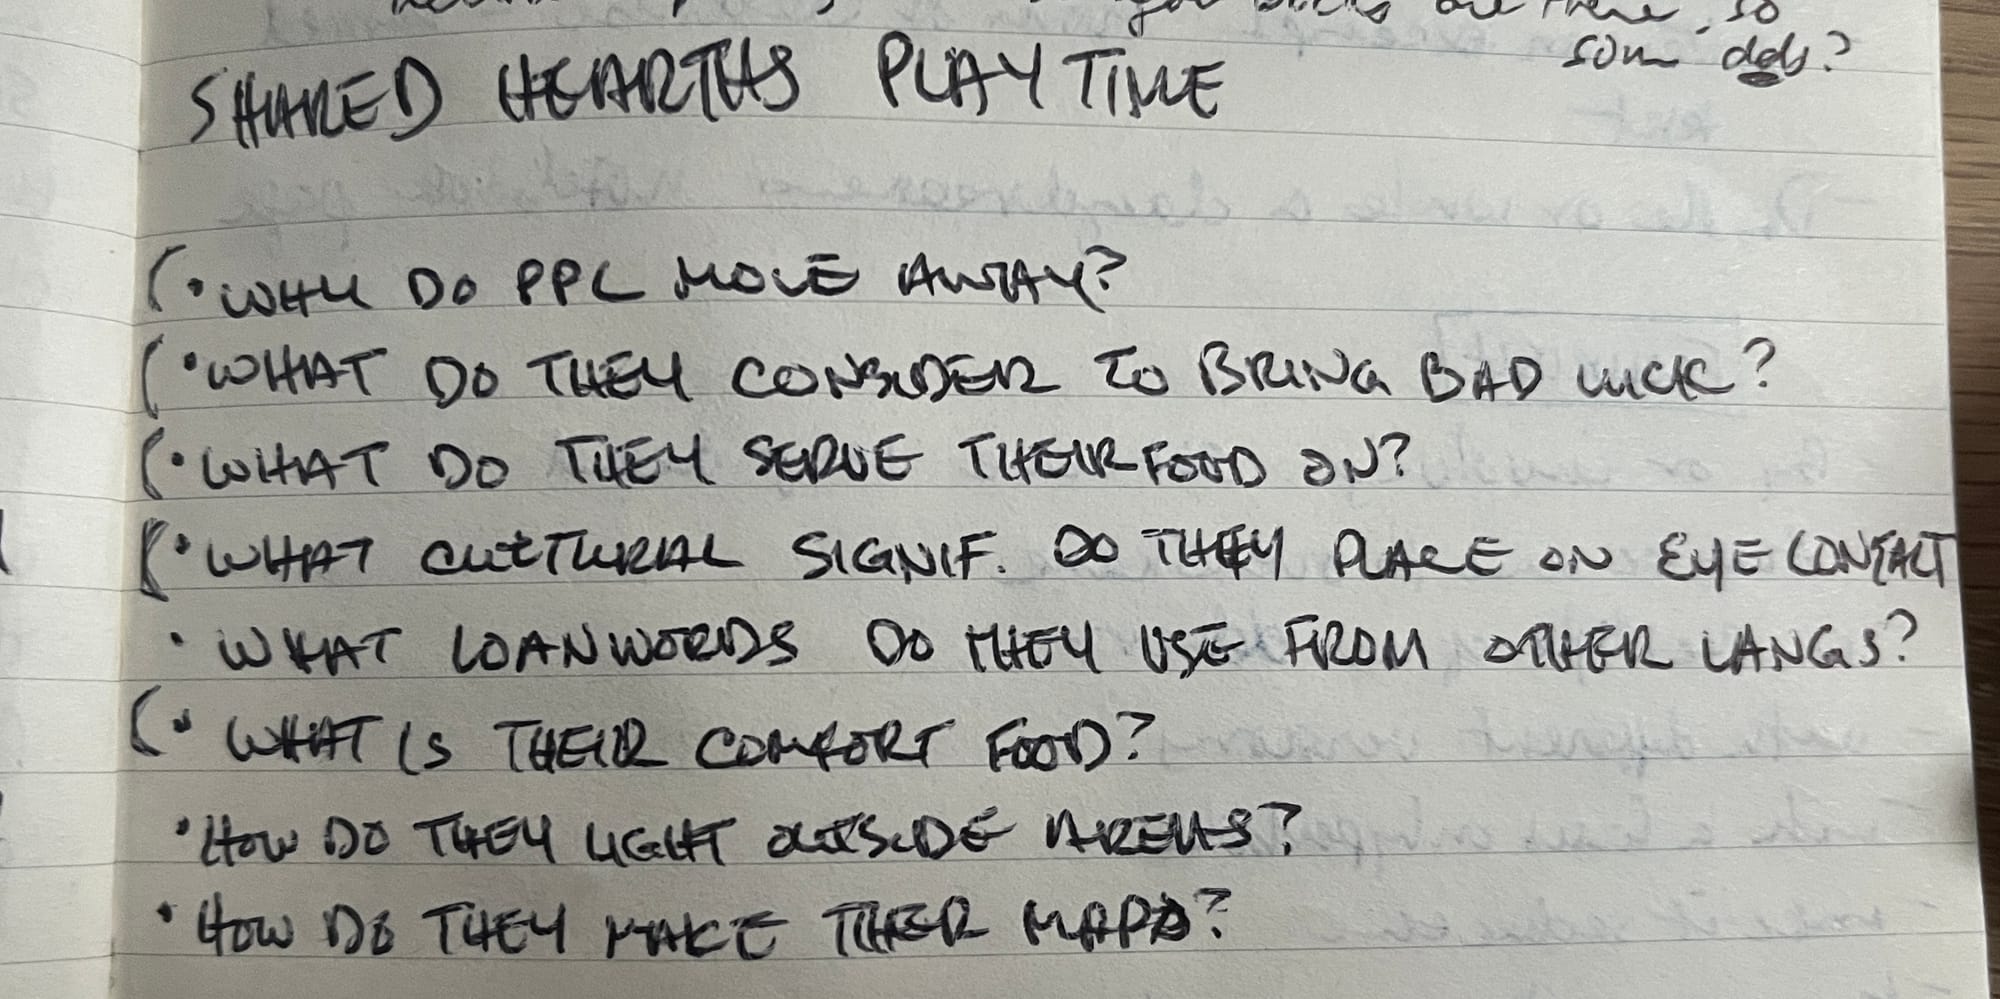 you are there, so
som dds?
SHARED HEARTHS PLAYTIME
(• WHY DO PPL MOVE AWAY?
(• WHAT DO THEY CONSIDER TO BRING BAD LUCK?
(• WHAT DO THEY SERVE THEIR FOOD ON?
(• WHAT CULTURAL SIGNIF. DO THEY PLACE ON EYE CONTACT
• WHAT LOANWORDS DO THEY USE FROM OTHER LANGS?
(• WHAT IS THEIR COMFORT FOOD?
• HOW DO THEY LIGHT OUTSIDE AREAS?
• HOW DO THEY MAKE THEIR MAPS?